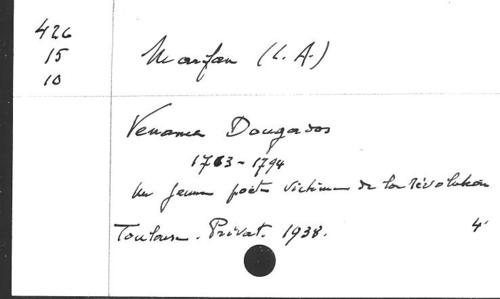 426
15
10
Marfan (L. A.)
Venance Dougados
1763-1794
Un jeune poète victime de la révolution
Toulouse. Privat. 1938. 4°